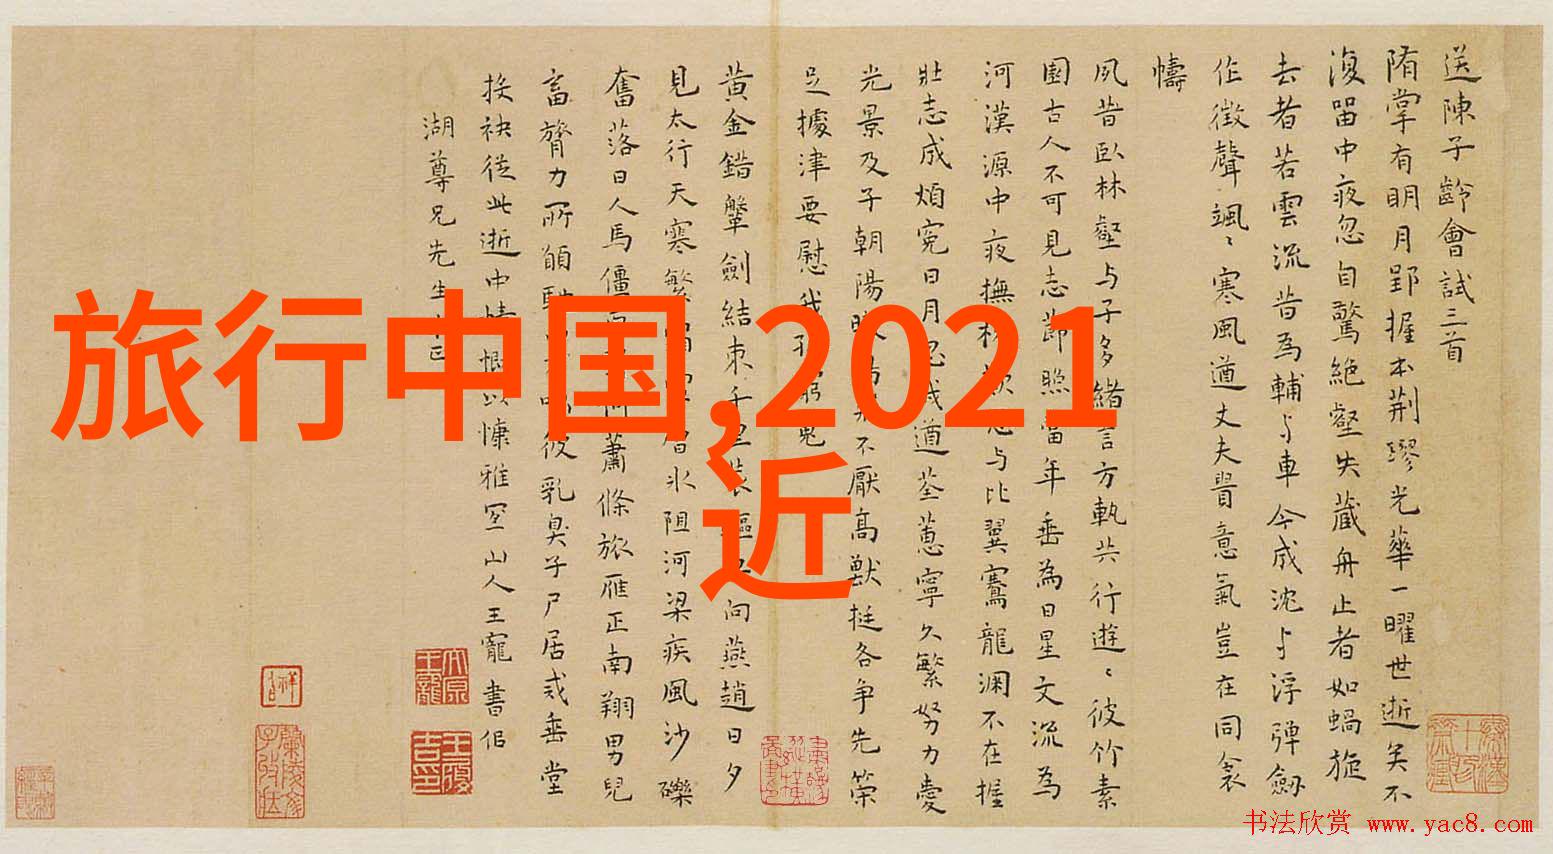 送陳子齡會試三首
隋掌有明月郢握本荆璆光華一曜世逝矣不
復留中夜忽自驚絶壑失藏舟止者如蝸旋
去者若雲流昔為輔與車今成沈與浮弾劔
作徵聲颯〻寒風遒丈夫貴意氣豈在同衾
幬
夙昔臥林壑与子多緒言方執共行遊〻彼竹素
園古人不可見志節照當年垂為日星文流為
河漢源中夜撫與比翼騫龍淵不在握
壯志成煩寃日月忽我遒荃蕙寧久繁努力愛
光景及子朝陽不厭高獸挺各争先榮
足據津要慰我
黄金錯鞶劍結束千里裝驅向燕趙日夕
見太行天寒繁水阻河梁疾風沙礫
奮落日人馬僵蕭條旅雁正南翔男兒
畜膂力所願彼乳臭子尸居或垂堂
接袂從此逝中情恨以慷雅宜山人王寵書侶
湖尊兄先生
旅行中国,2021
近
書法欣赏 www.yac8.com